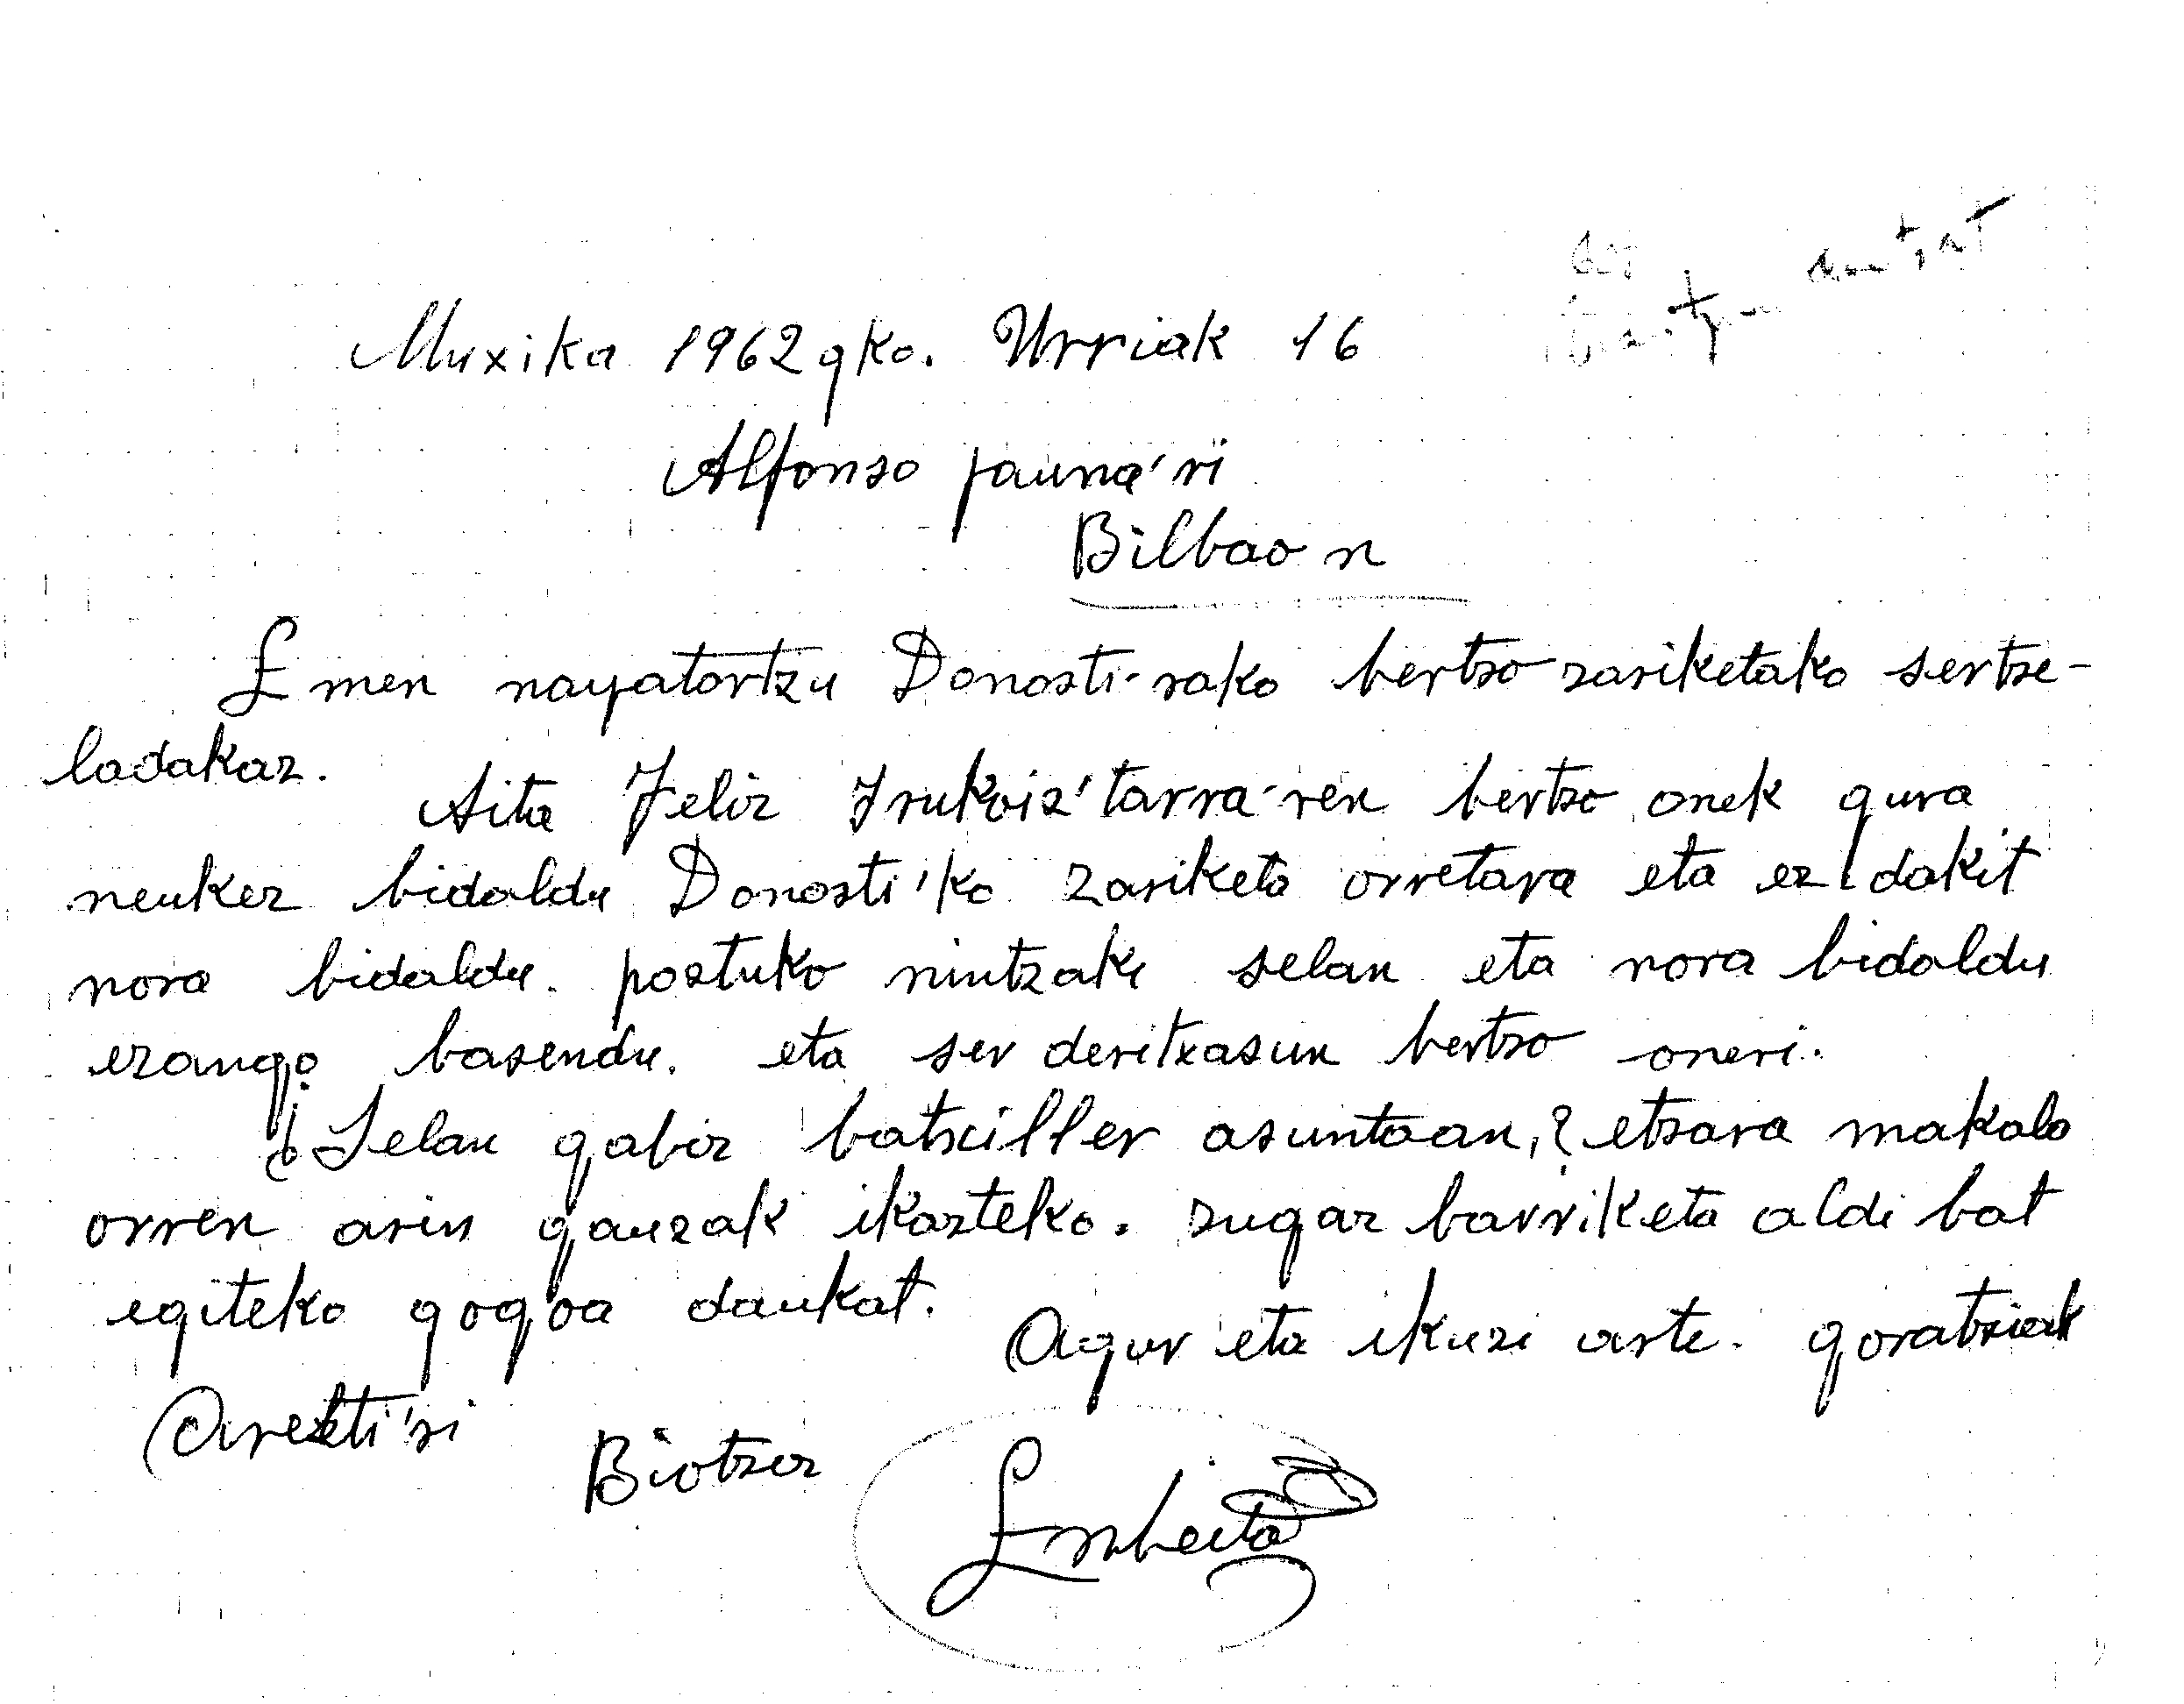 Muxika 1962gko. Urriak 16
Alfonso jauna'ri
Bilbaon
Emen nayatortzu Donosti-rako bertso sariketako sertze-
ladakaz.
Aita Feliz Irukoiz'tarra-ren bertso onek gura
neukez bidaldu Donosti'ko zariketa orretara eta ez dakit
nora bidaldu. poztuko nintzake selan eta nora bidaldu
ezango bazendu. eta ser deritxasun bertso oneri.
¿Selan gabiz batxiller asuntoan,? etzara makalo
orren arin gauzak ikazteko. zugaz barriketa aldi bat
egiteko gogoa daukat.
Agur eta ikuzi arte. goratziak
Arezti'ri
Biotzez
Enbeita